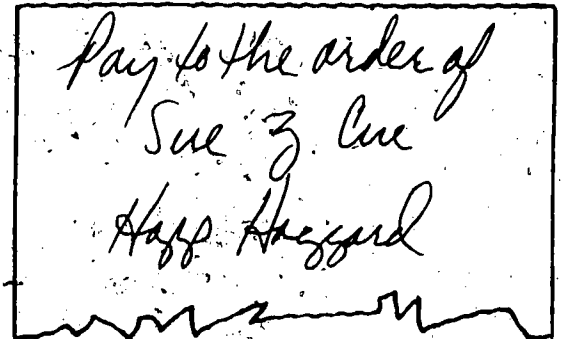 Pay to the order of
Sue Z. Cue
Happ Hazzard